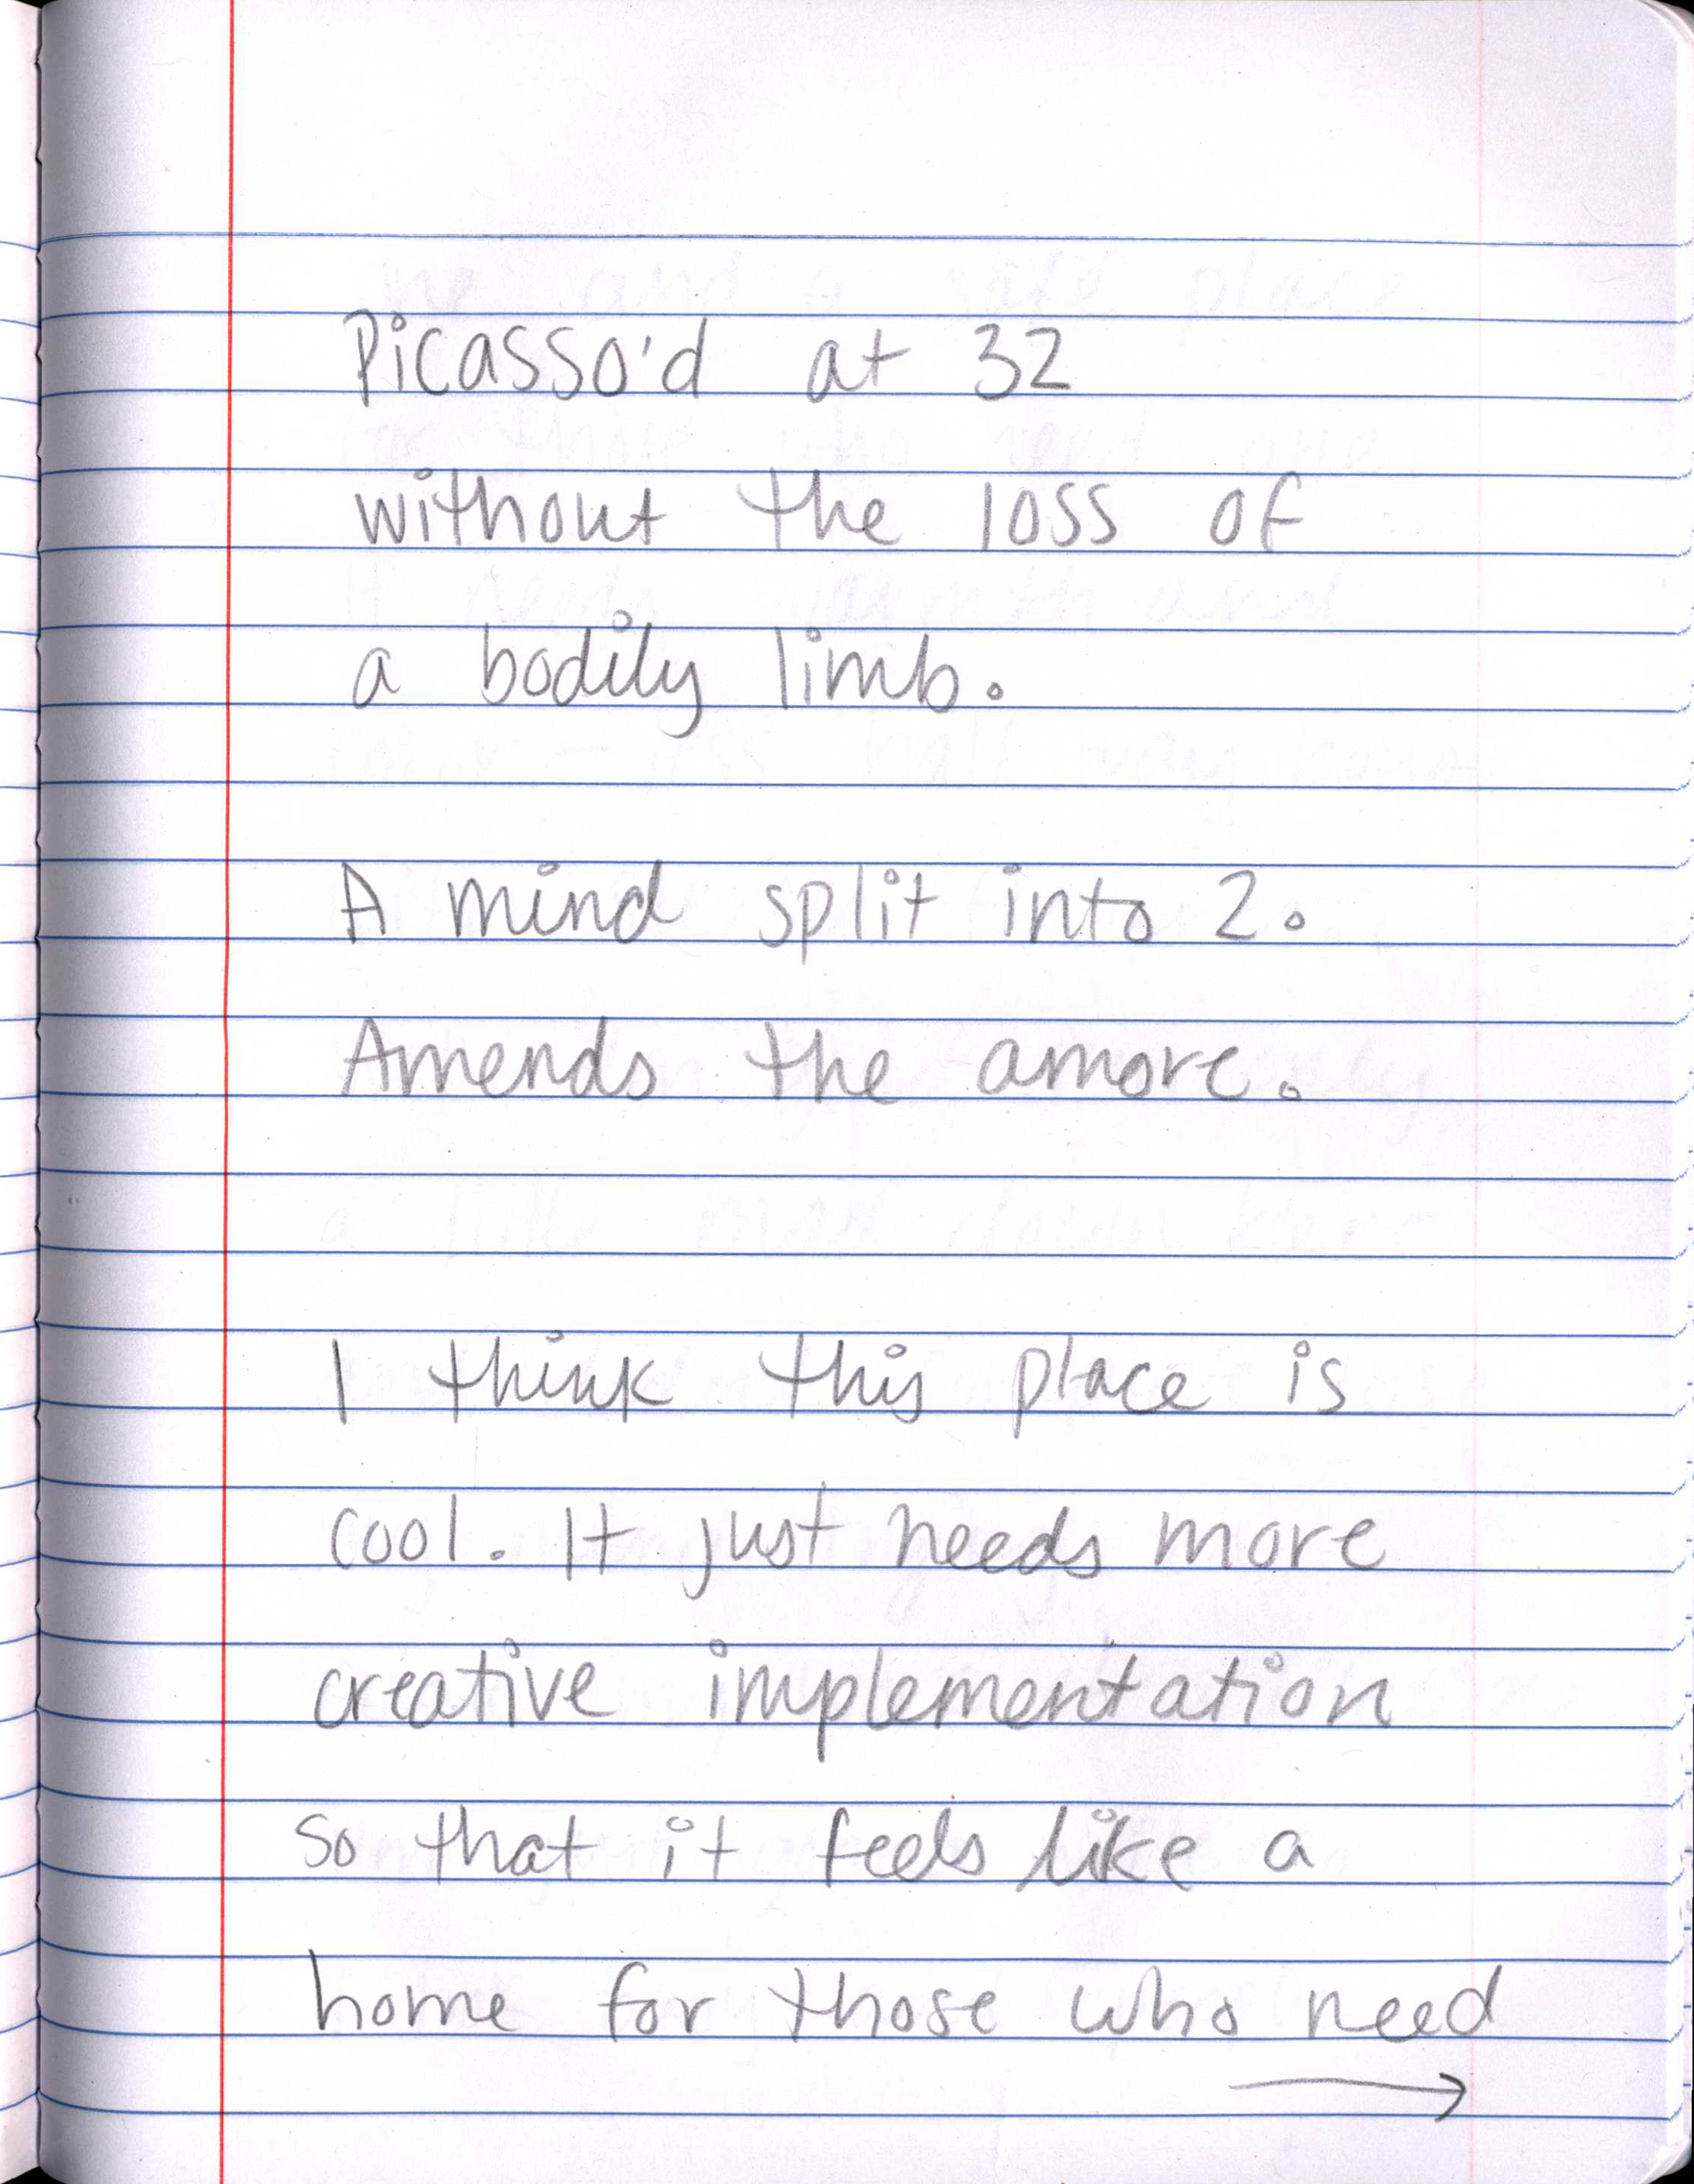 Picasso'd at 32
without the loss of
a bodily limb.
A mind split into 2.
Amends the amore.
I think this place is
cool. It just needs more
creative implementation
so that it feels like a
home for those who need